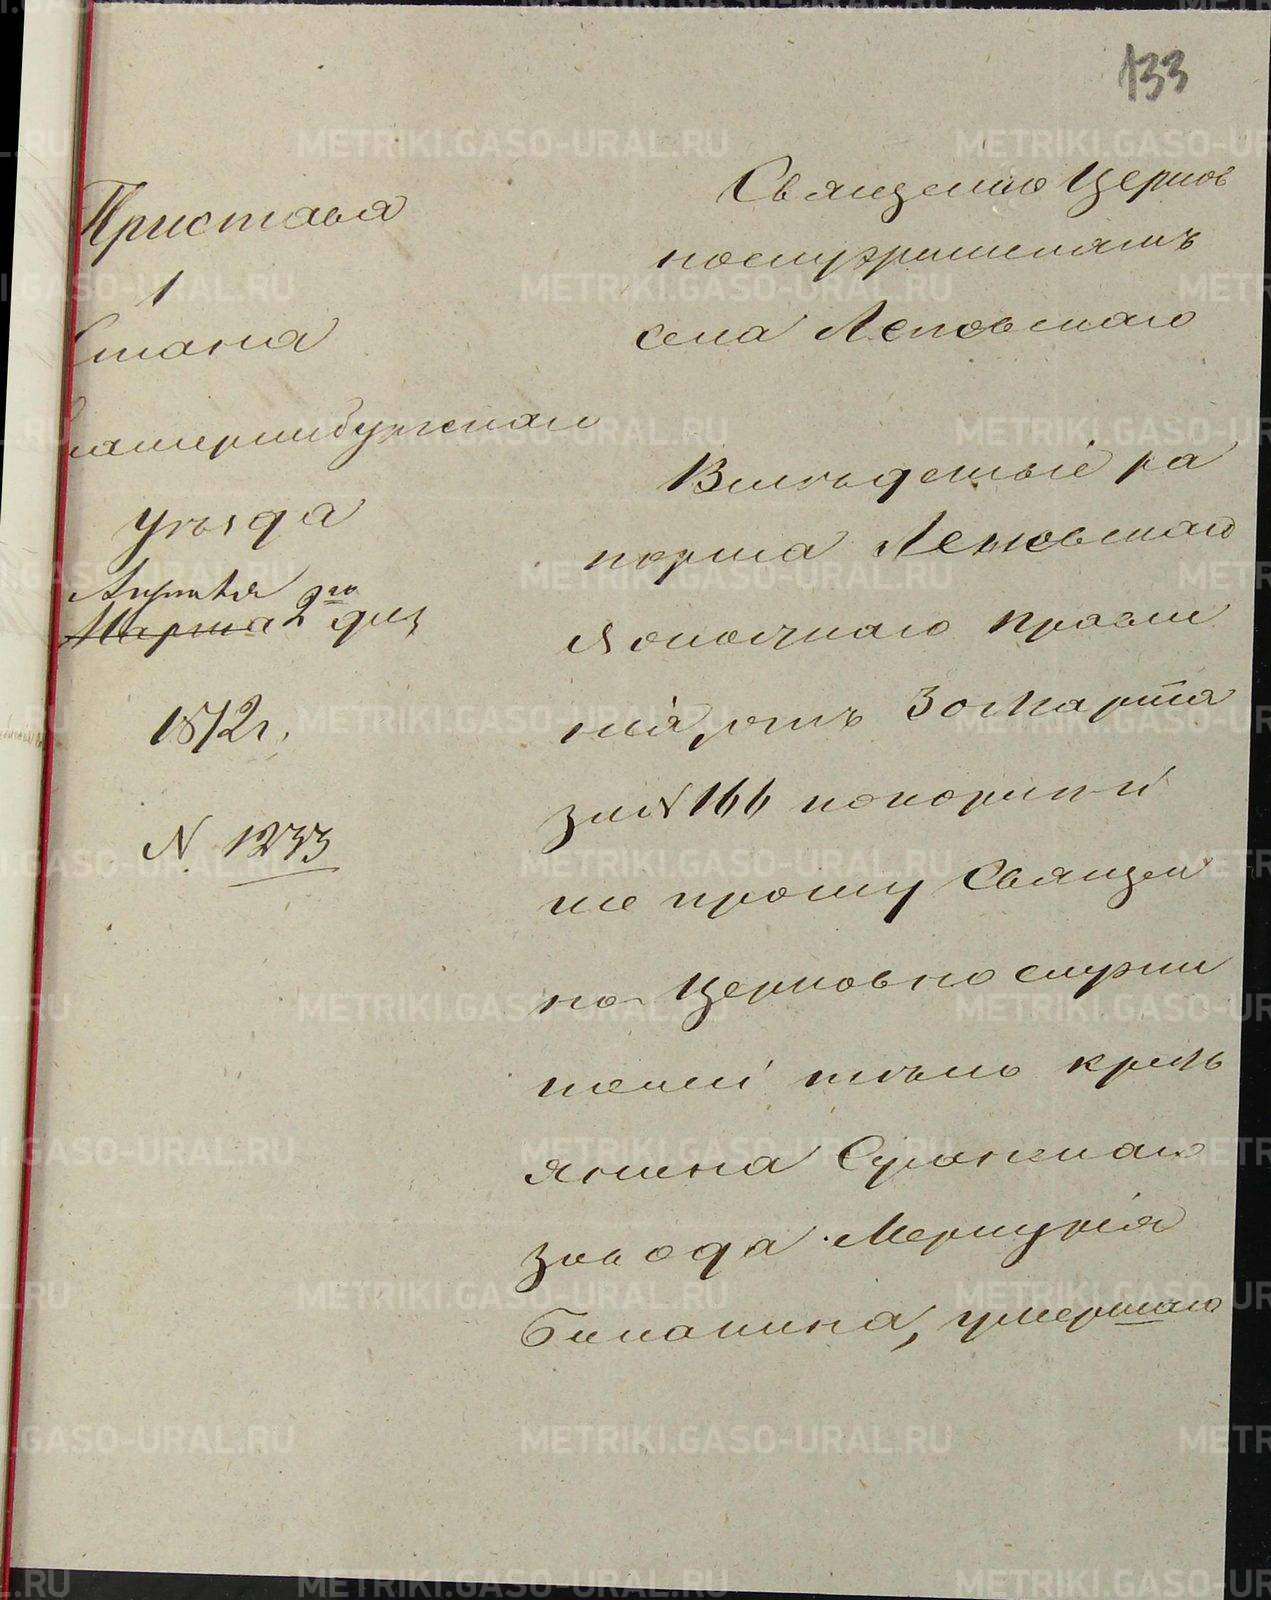 133
Пристава
1
Стана
Екатеринбургскаго
Уѣзда
Апрѣля
Марта 2го дня
1872 г.
N. 1233
Священно Церков
нослужителямъ
села Леновскаго
Вслѣдствіе ра
порта Леновскаго
Волостнаго правле
нія, отъ 30 Марта
за N 166 покорнѣй
ше прошу Священ
но-Церковнослужи
телей тѣло кресть
янина Сусанскаго
завода Меркурія
Билапина, умершаго
METRIKI.GASO-URAL.RU